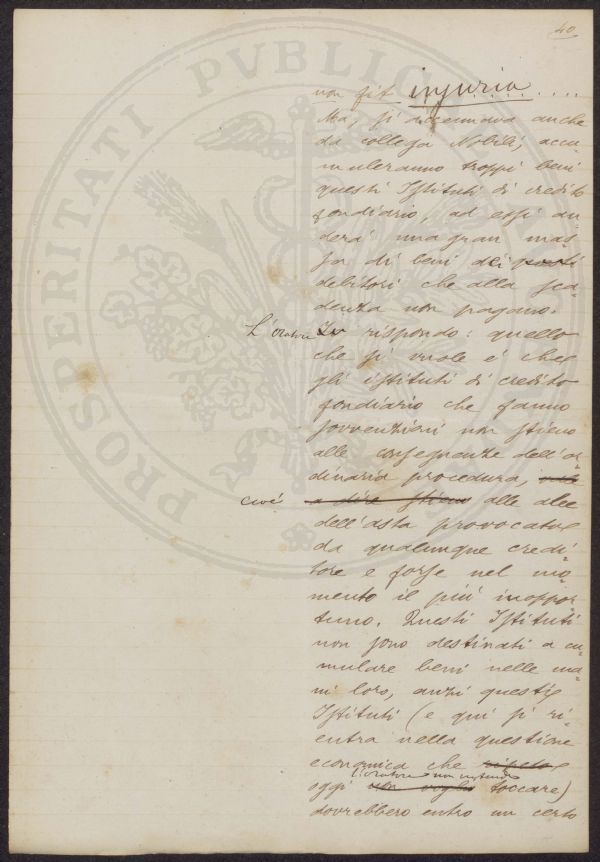 40
non fit injuria .....
Ma, si accennava anche
da collega Nobili, accu-
muleranno troppi beni
questi Istituti di credito
fondiario, ad essi an-
derà una gran mas-
sa di beni dei
debitori che alla sca-
denza non pagano.
L'oratore Io rispondo: quello
che si vuole è che
gli istituti di credito
fondiario che fanno
sovvenzioni non stieno
alle conseguenze dell'or-
dinaria procedura,
cioè a dire stieno alle alee
dell'asta provocata
da qualunque credi-
tore e forse nel mo-
mento il più inoppor-
tuno. Questi Istituti
non sono destinati a cu-
mulare beni nelle ma-
ni loro, anzi questi
Istituti (e qui si ri-
entra nella questione
economica che
l'oratore non intende
oggi non voglio toccare)
dovrebbero entro un certo
PROSPERITATI PVBLICAE